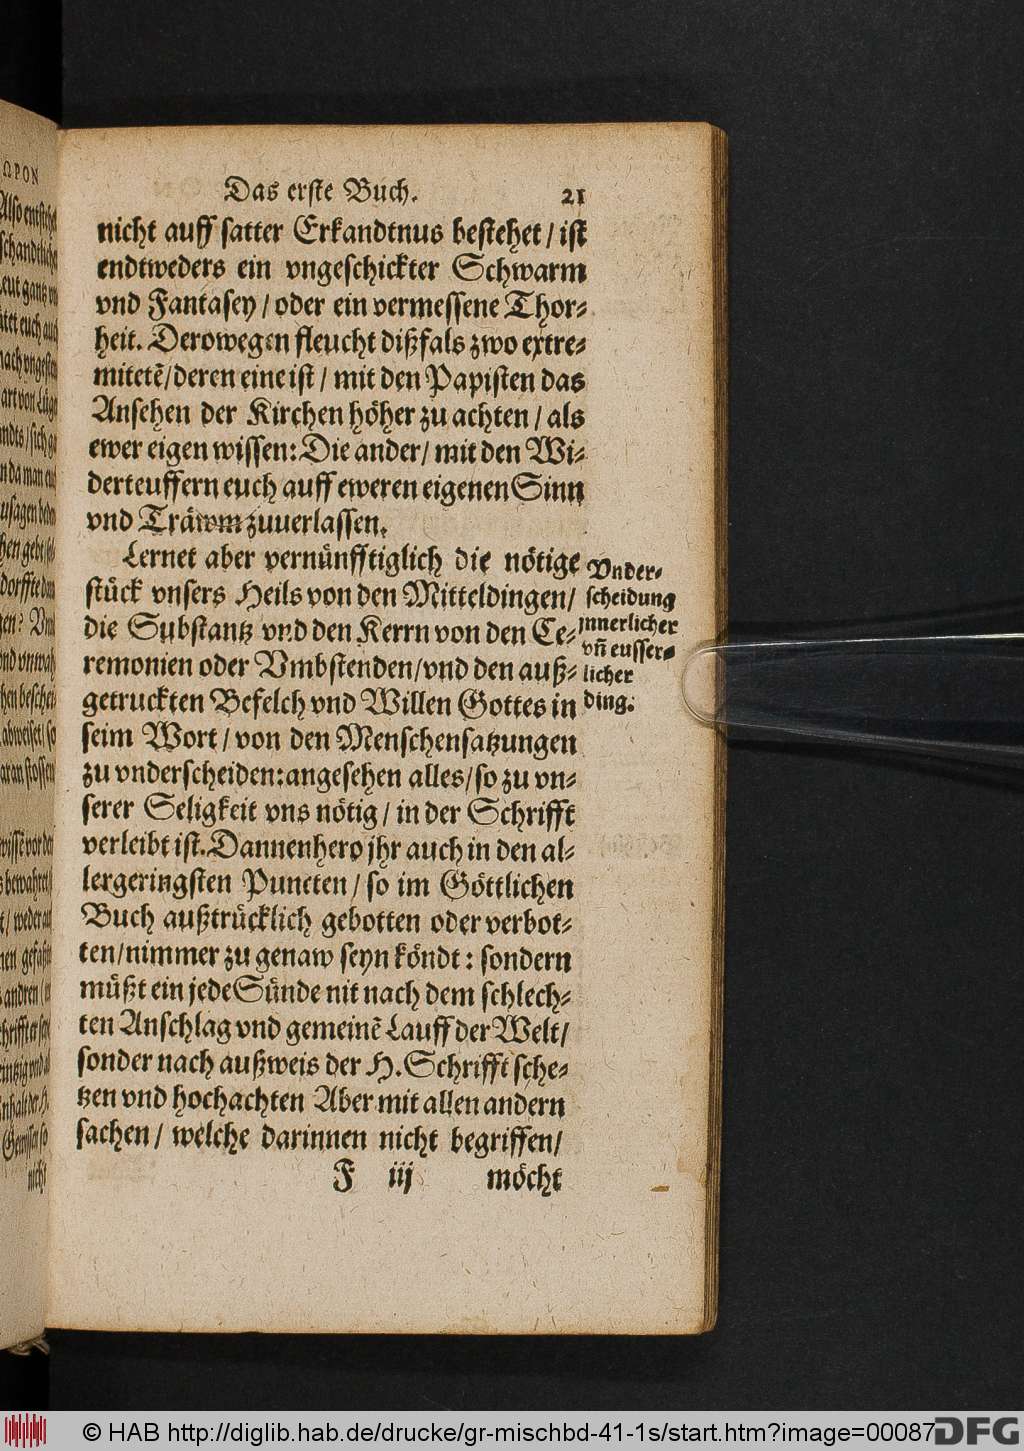 Das erste Buch. 21
nicht auff satter Erkandtnus bestehet / ist
endtweders ein vngeschickter Schwarm
vnd Fantasey / oder ein vermessene Thor-
heit. Derowegen fleucht dißfals zwo extre-
mitetē / deren eine ist / mit den Papisten das
Ansehen der Kirchen höher zu achten / als
ewer eigen wissen: Die ander / mit den Wi-
derteuffern euch auff eweren eigenen Sinn
vnd Träwm zuuerlassen.
Lernet aber vernünfftiglich die nötige
stück vnsers Heils von den Mitteldingen /
die Substantz vnd den Kerrn von den Ce-
remonien oder Vmbstenden / vnd den auß-
getruckten Befelch vnd Willen Gottes in
seim Wort / von den Menschensatzungen
zu vnderscheiden: angesehen alles / so zu vn-
serer Seligkeit vns nötig / in der Schrifft
verleibt ist. Dannenhero jhr auch in den al-
lergeringsten Puncten / so im Göttlichen
Buch außtrücklich gebotten oder verbot-
ten / nimmer zu genaw seyn köndt: sondern
müßt ein jede Sünde nit nach dem schlech-
ten Anschlag vnd gemeinē Lauff der Welt /
sonder nach außweis der H. Schrifft sche-
tzen vnd hochachten Aber mit allen andern
sachen / welche darinnen nicht begriffen /
F iij möcht
Vnder-
scheidung
jnnerlicher
vn̄ eusser-
licher
ding.
© HAB http://diglib.hab.de/drucke/gr-mischbd-41-1s/start.htm?image=00087
DFG